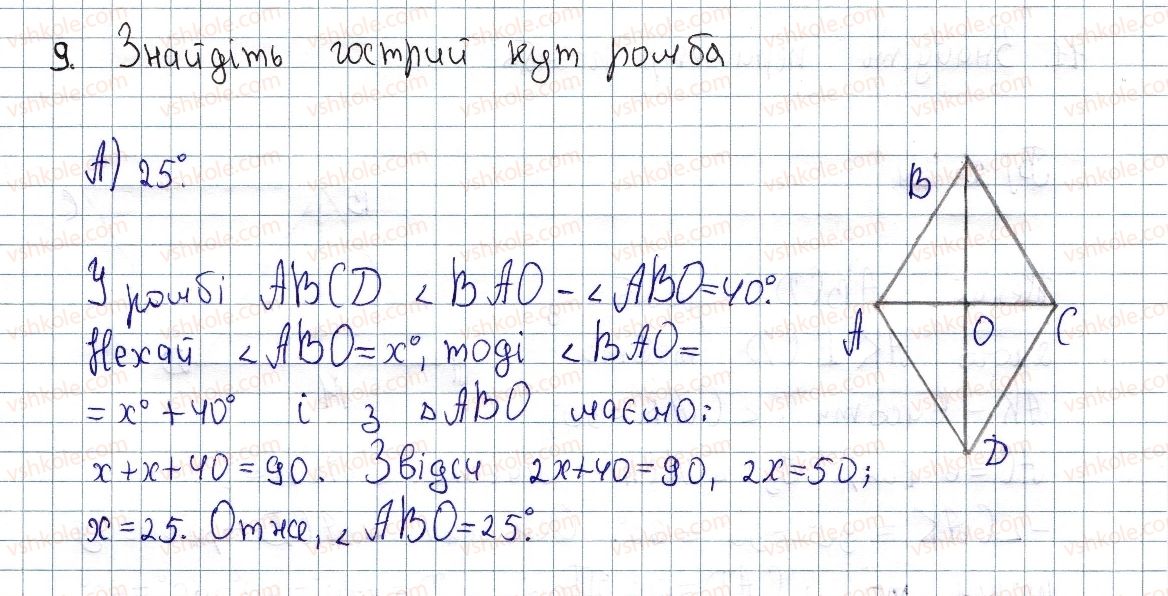 9. Знайдіть гострий кут ромба
А) 25°.
У ромбі ABCD ∠BAO - ∠ABO = 40°.
Нехай ∠ABO = x°, тоді ∠BAO =
= x° + 40° і з ΔABO маємо:
x + x + 40 = 90. Звідси 2x + 40 = 90, 2x = 50;
x = 25. Отже, ∠ABO = 25°.
B
A
O
C
D
vshkole.com